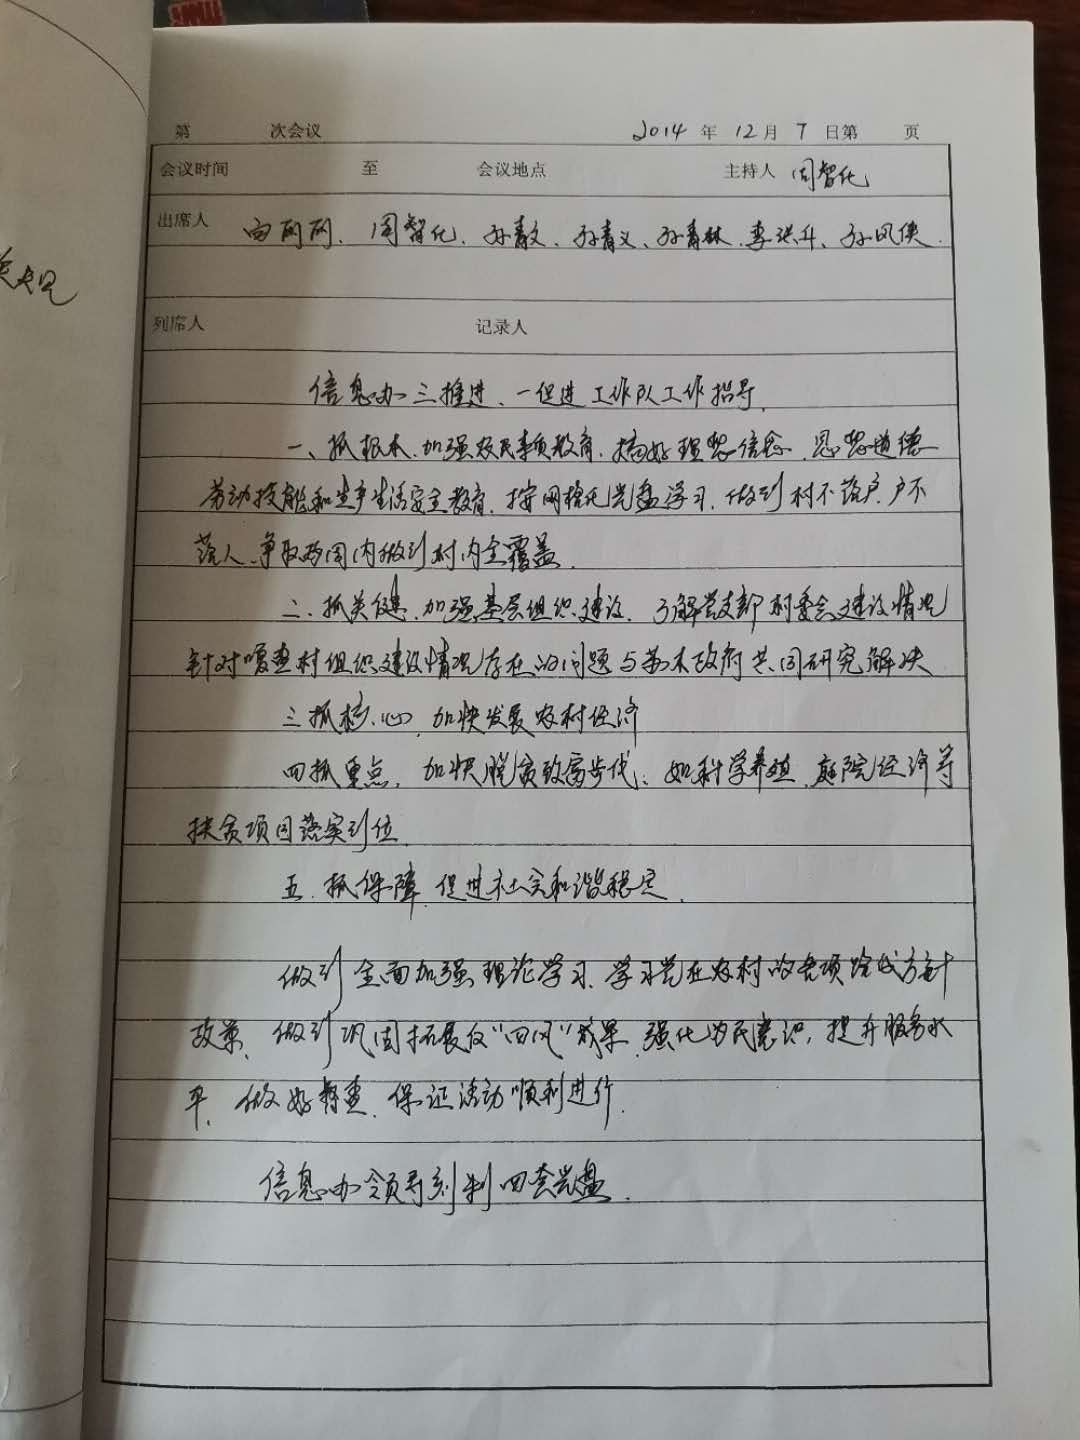 第 次会议 2014 年 12 月 7 日第 页
会议时间 至 会议地点 主持人 周智化
出席人 白丽丽、周智化、孙青文、孙青义、孙青林、李洪升、孙凤侠
列席人 记录人
信息办三推进、一促进工作队工作指导
一、抓根本、加强农民素质教育、搞好理想信念、思想道德
劳动技能和生产生活安全教育、按网格化光盘学习、做到村不落户、户不
落人、争取两周内做到村内全覆盖
二、抓关键、加强基层组织建设、了解党支部村委会建设情况
针对嘎查村组织建设情况存在的问题与苏木政府共同研究解决
三抓核心、加快发展农村经济
四抓重点、加快脱贫致富步伐：如科学养殖、庭院经济等
扶贫项目落实到位
五、抓保障、促进社会和谐稳定、
做到全面加强理论学习、学习党在农村的各项路线方针
政策、做到巩固拓展反“四风”成果、强化为民意识，提升服务水
平、做好督查、保证活动顺利进行、
信息办领导刻制四套光盘、